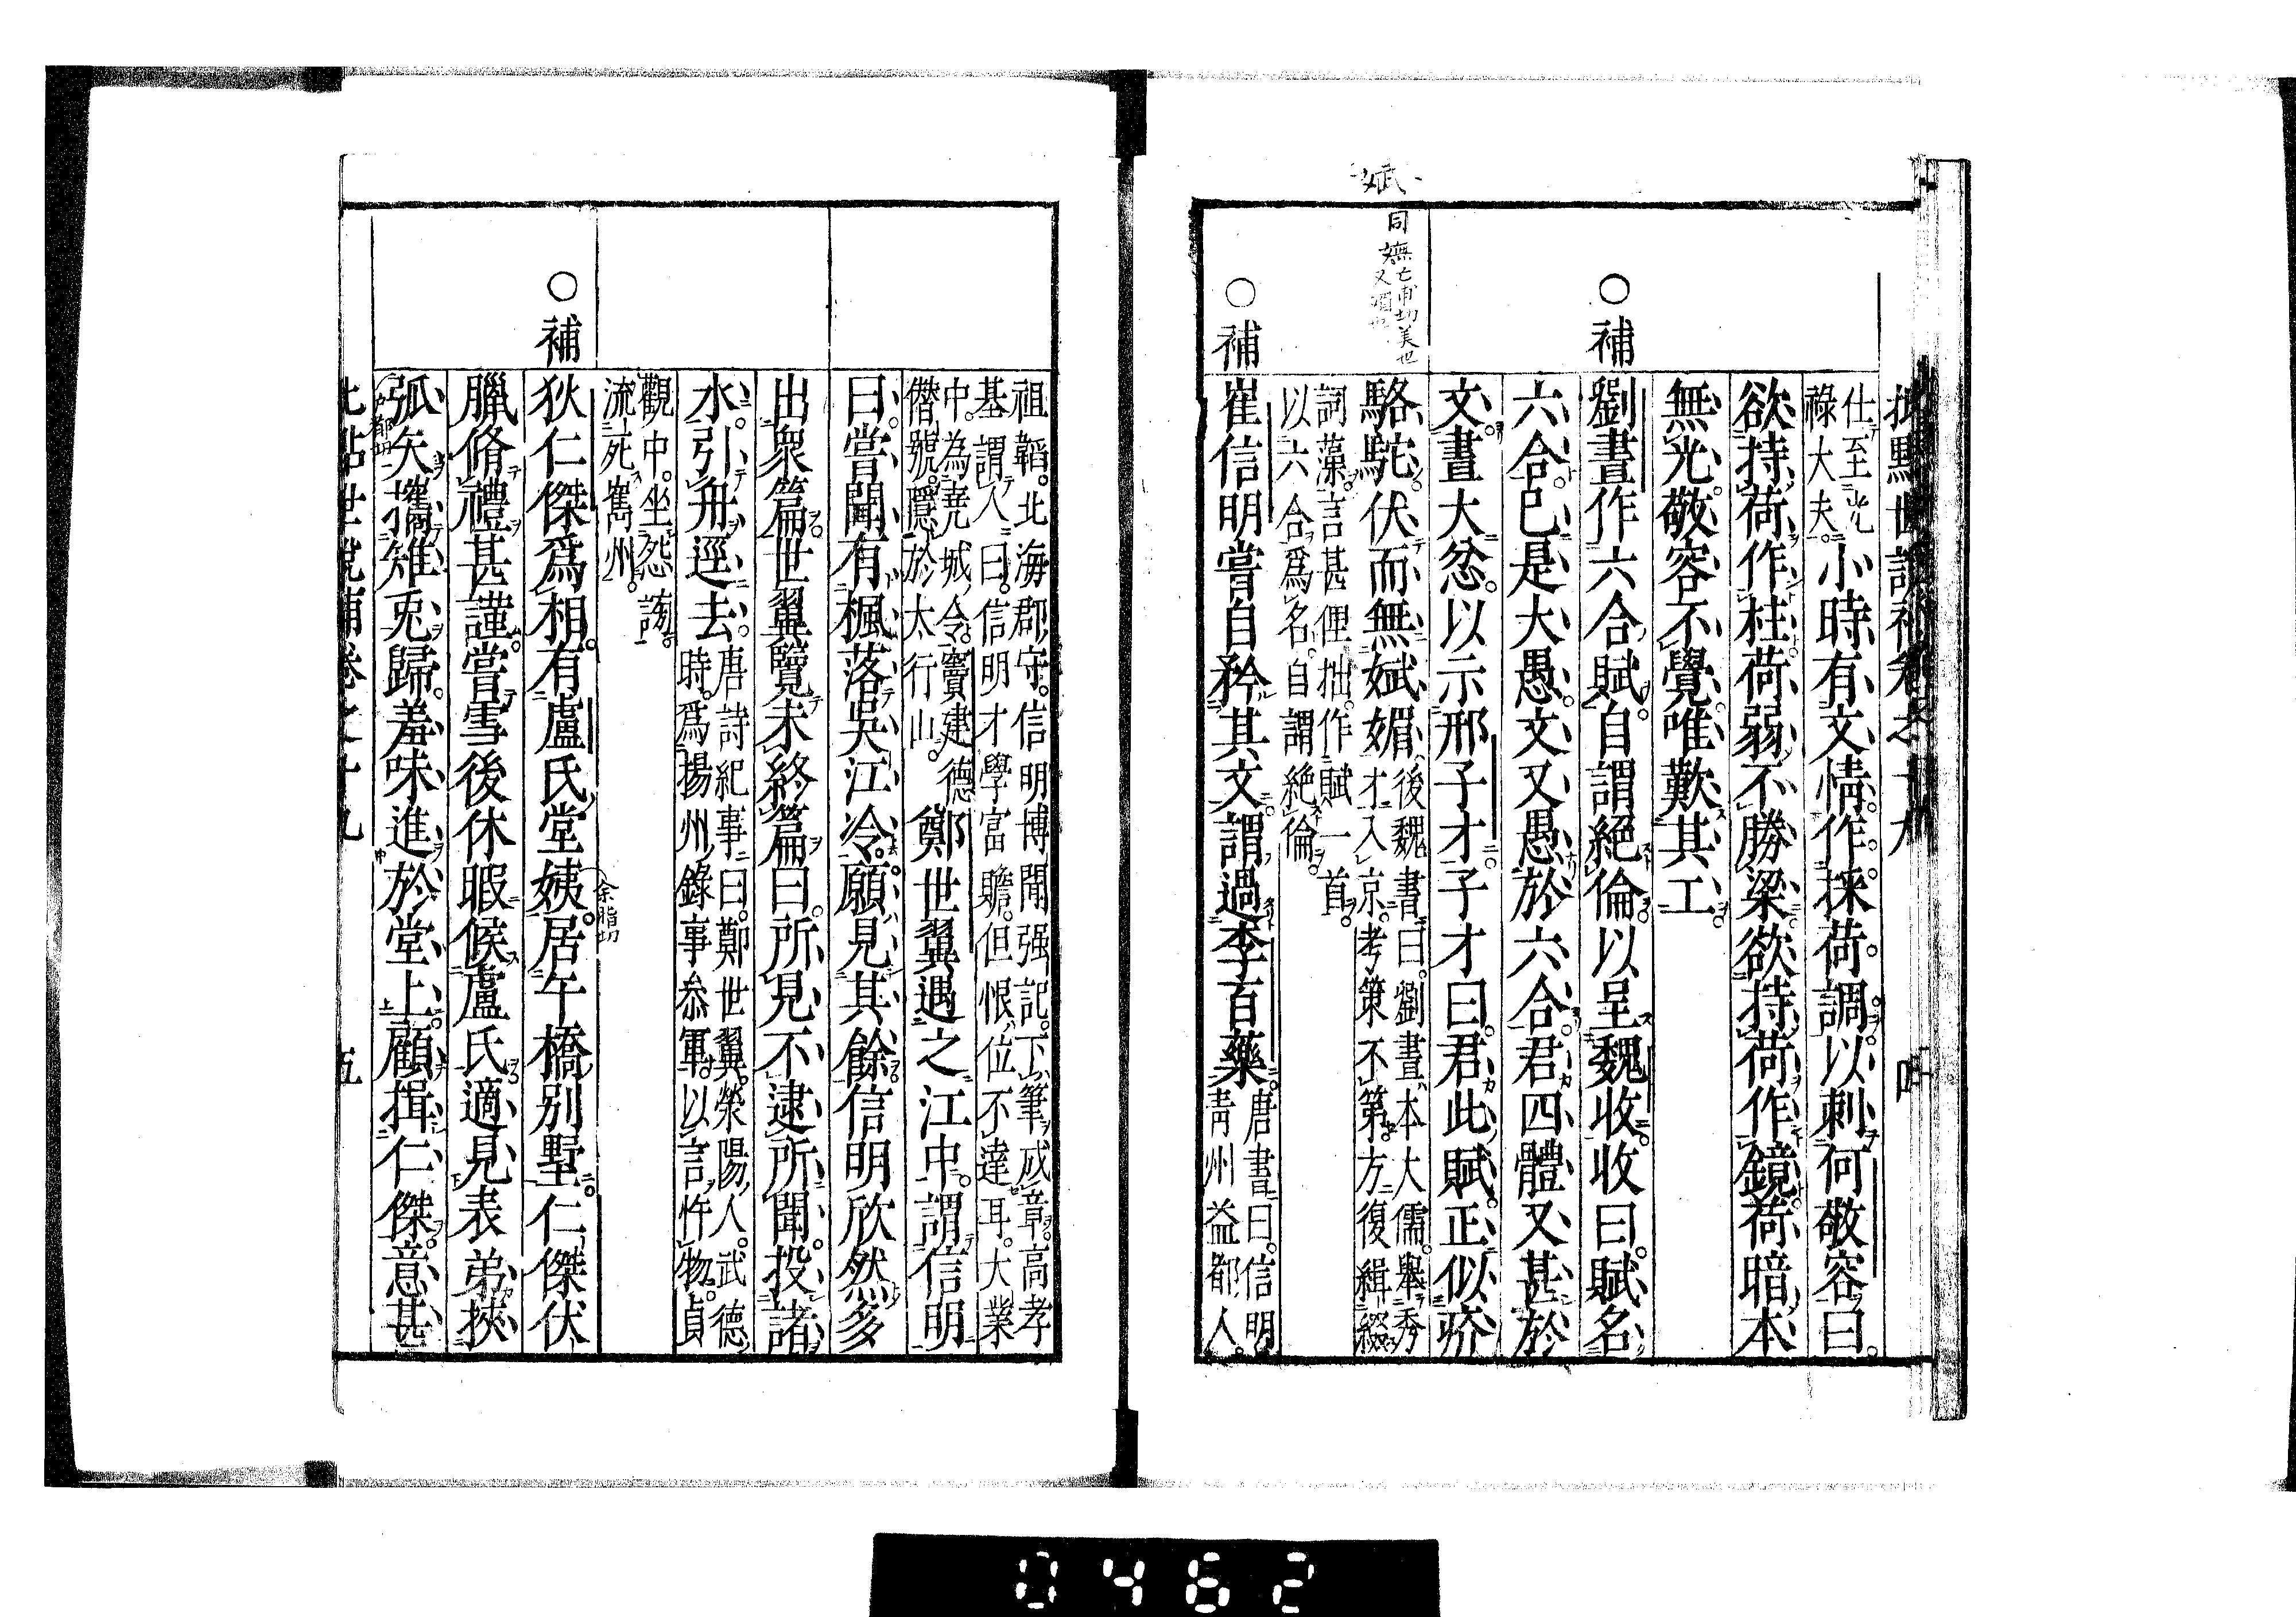 批點世說補卷之十九
仕至光
祿大夫。
小時有文情。作採荷。調以刺何敬容曰。
欲持荷作柱荷弱不勝梁欲持荷作鏡荷暗本
無光。敬容不覺唯歎其工。
○補
劉晝作六合賦。自謂絕倫。以呈魏收。收曰。賦名
六合。已是大愚。文又愚於六合。君四體又甚於
文。晝大忿。以示邢子才。子才曰。君此賦。正似疥
駱駝。伏而無妩媚。
後魏書曰。劉晝本大儒。舉秀
才入京。考策不第。方復緝綴
詞藻。言甚俚拙。作賦一首。
以六合爲名。自謂絕倫。
○補
崔信明嘗自矜其文。謂過李百藥。
唐書曰。信明
青州益都人。
祖韜。北海郡守。信明博聞强記。下筆成章。高孝
基謂人曰。信明才學富贍。但恨位不達耳。大業
中。為堯城令。竇建德
僭號。隱於太行山。
鄭世翼遇之江中。謂信明
曰。嘗聞有楓落吳江冷。願見其餘。信明欣然多
出衆篇。世翼覽未終篇曰。所見不逮所聞。投諸
水。引舟逕去。
唐詩紀事曰。鄭世翼。滎陽人。武德
時。爲揚州錄事叅軍。以言忤物。貞
觀中。坐怨謗。
流死巂州。
○補
狄仁傑爲相。有盧氏堂姨。居午橋別墅。仁傑伏
余脂切
臘脩禮甚謹。嘗雪後休暇候盧氏適見表弟。挾
弧矢攜雉兎歸。羞味進於堂上。顧揖仁傑。意甚
批點世說補卷之十九
五